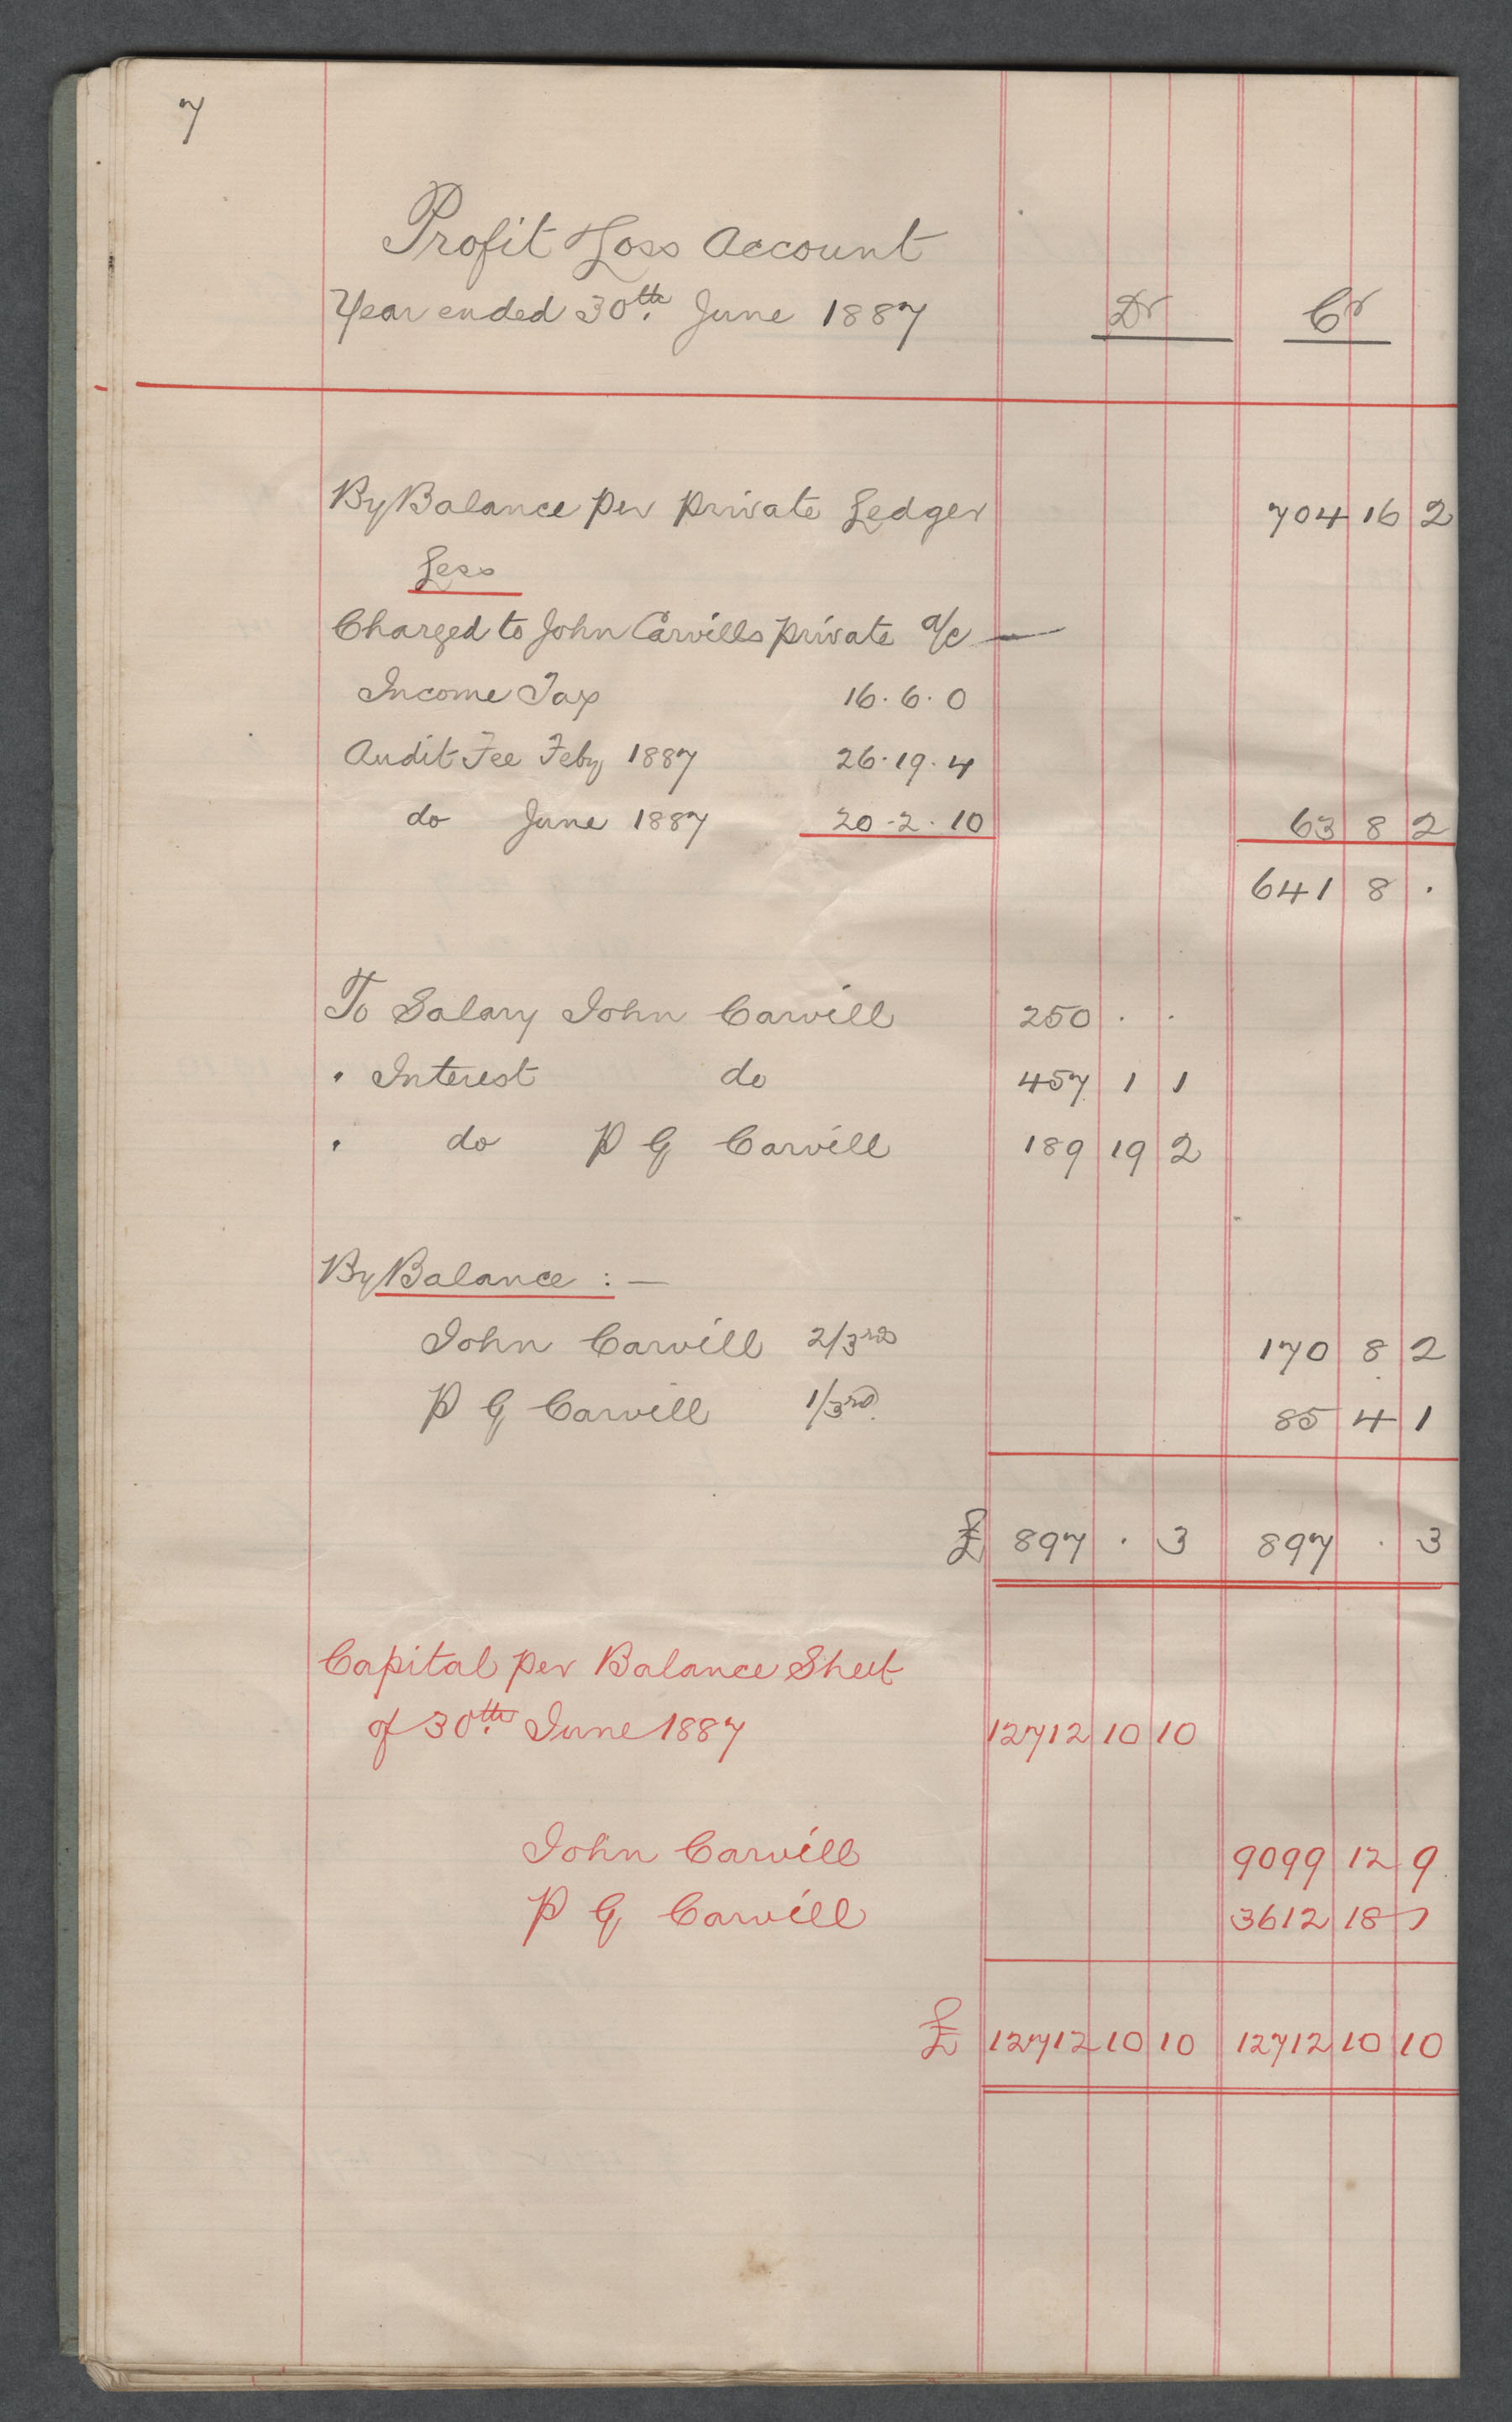 7
Profit & Loss Account
Year ended 30th June 1887 Dr Cr
By Balance per private Ledger 704 16 2
Less
Charged to John Carvills private a/c —
Income Tax 16.6.0
Audit Fee Feby 1887 26.19.4
do June 1887 20.2.10 63 8 2
641 8 .
To Salary John Carvill 250 . .
" Interest do 457 1 1
" do P G Carvill 189 19 2
By Balance : —
John Carvill 2/3rds 170 8 2
P G Carvill 1/3rd 85 4 1
£ 897 . 3 897 . 3
Capital per Balance Sheet
of 30th June 1887 12712 10 10
John Carvill 9099 12 9
P G Carvill 3612 18 1
£ 12712 10 10 12712 10 10